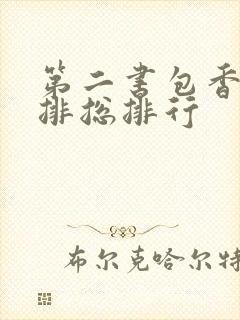 第二书包香
排总排行
布尔克哈尔特